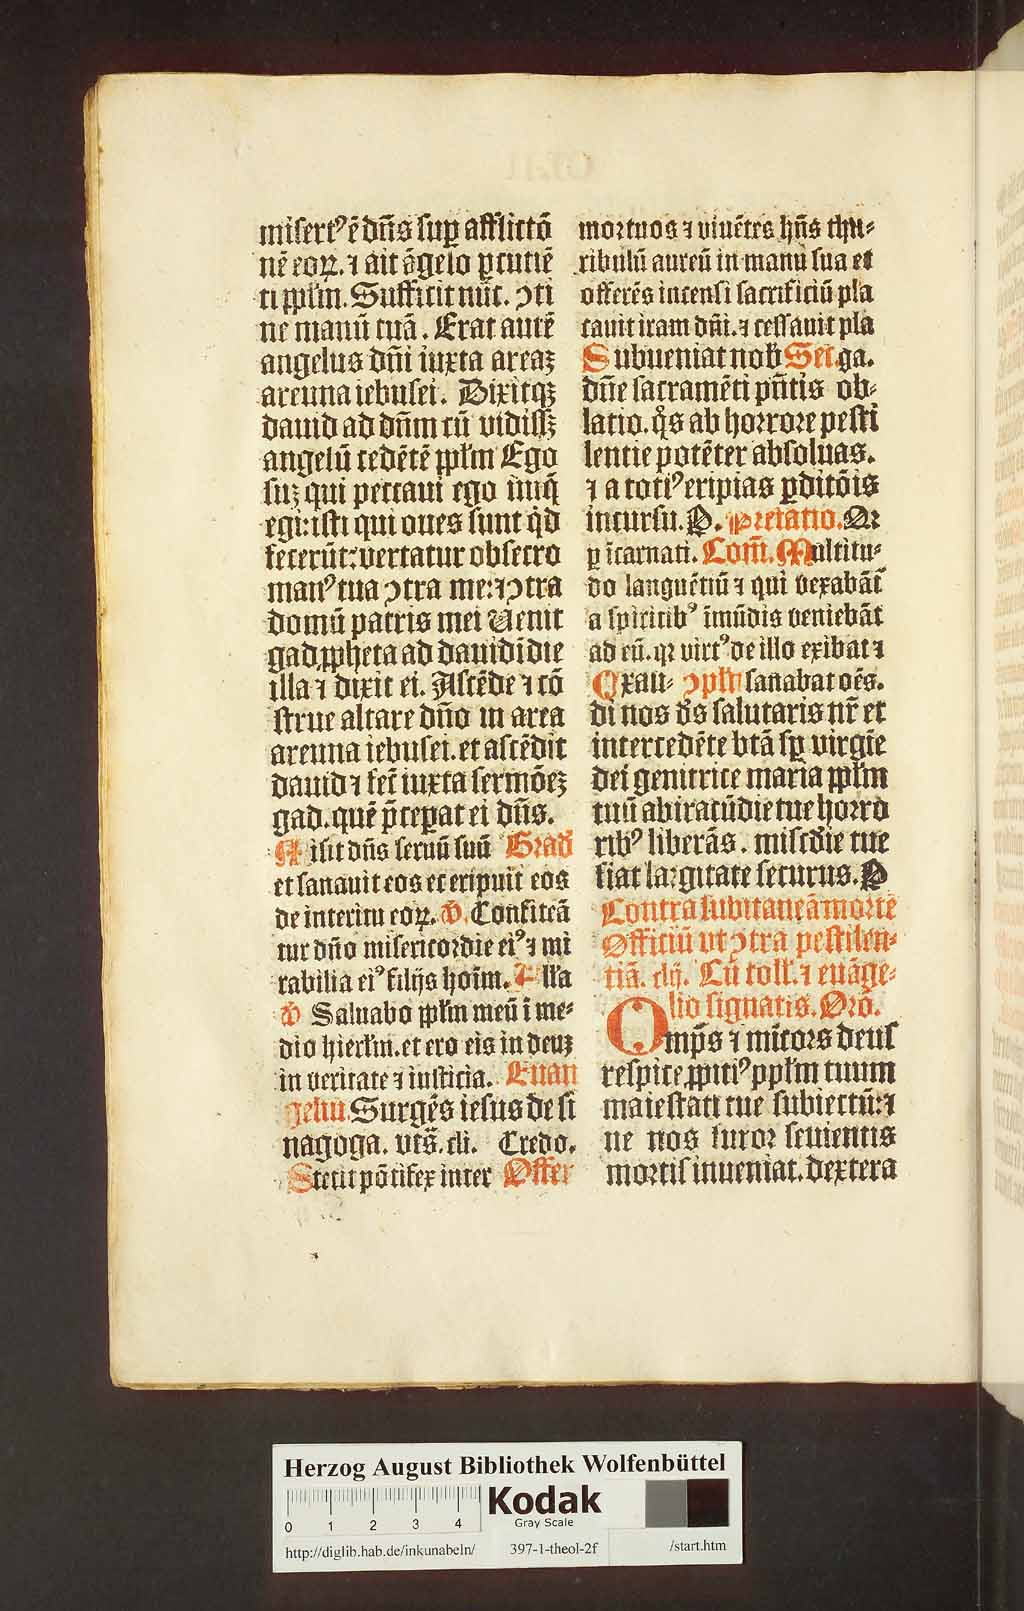 misert⁹ ē dn̄s suꝑ afflictō
nē eoꝝ. ⁊ ait āgelo ꝑcutiē
ti pplm̄. Sufficit nūc. ꝯti
ne manū tuā. Erat autē
angelus dn̄i iuxta areaꝫ
areuna iebusei. Dixitqꝫ
dauid ad dn̄m cū vidissꝫ
angelū cedētē pplm̄ Ego
suꝫ qui peccaui ego iniq̄
egi: isti qui oues sunt qd̓
fecerūt: vertatur obsecro
man⁹ tua ꝯtra me: ⁊ ꝯtra
domū patris mei Uenit
gad ꝓpheta ad dauid ī die
illa ⁊ dixit ei. Ascēde ⁊ cō
strue altare dn̄o in area
areuna iebusei. et ascēdit
dauid ⁊ fec̄ iuxta sermōeꝫ
gad. quē p̄ceꝑat ei dn̄s.
Misit dn̄s seruū suū Grad̓
et sanauit eos et eripuit eos
de interitu eoꝝ. V̄. Confiteā
tur dn̄o misericordie ei⁹ ⁊ mi
rabilia ei⁹ filijs hoīm. Alla
V̄ Saluabo pplm̄ meū ī me⸗
dio hierlm̄. et ero eis in deuꝫ
in veritate ⁊ iusticia. Euan
geliū Surgēs iesus de si
nagoga. vts̄. cli. Credo.
Stetit pōtifex inter Offer
mortuos ⁊ viuētes hn̄s thu⸗
ribulū aureū in manu sua et
offerēs incensi sacrificiū pla
cauit iram dn̄i. ⁊ cessauit pla
Subueniat nob̓ Sec̄. ga.
dn̄e sacramēti pn̄tis ob⸗
latio. q̄s ab horrore pesti
lentie potēter absoluas.
⁊ a toti⁹ eripias ꝑditōis
incursu. P. Prefatio. Qr
ꝑ īcarnati. Com̄. Multitu⸗
do languētiū ⁊ qui vexabāt̄
a spiritib⁹ īmūdis veniebāt
ad eū. qr virt⁹ de illo exibat ⁊
Exau⸗ ꝯpln̄ sanabat oēs.
di nos d̓s salutaris nr̄ et
intercedēte btā sꝑ virgīe
dei genitrice maria pplm̄
tuū ab iracūdie tue horro
rib⁹ liberās. miscd̓ie tue
fiat largitate securus. P
Contra subitaneā mortē
Officiū vt ꝯtra pestilen⸗
tiā. clij. Cū coll̄. ⁊ euāge⸗
lio signatis. Orō.
Omp̄s ⁊ mīcors deus
respice ꝓpiti⁹ pplm̄ tuum
maiestati tue subiectū: ⁊
ne nos furor seuientis
mortis inueniat. dextera
Herzog August Bibliothek Wolfenbüttel
0 1 2 3 4
Kodak
Gray Scale
http://diglib.hab.de/inkunabeln/ 397-1-theol-2f /start.htm